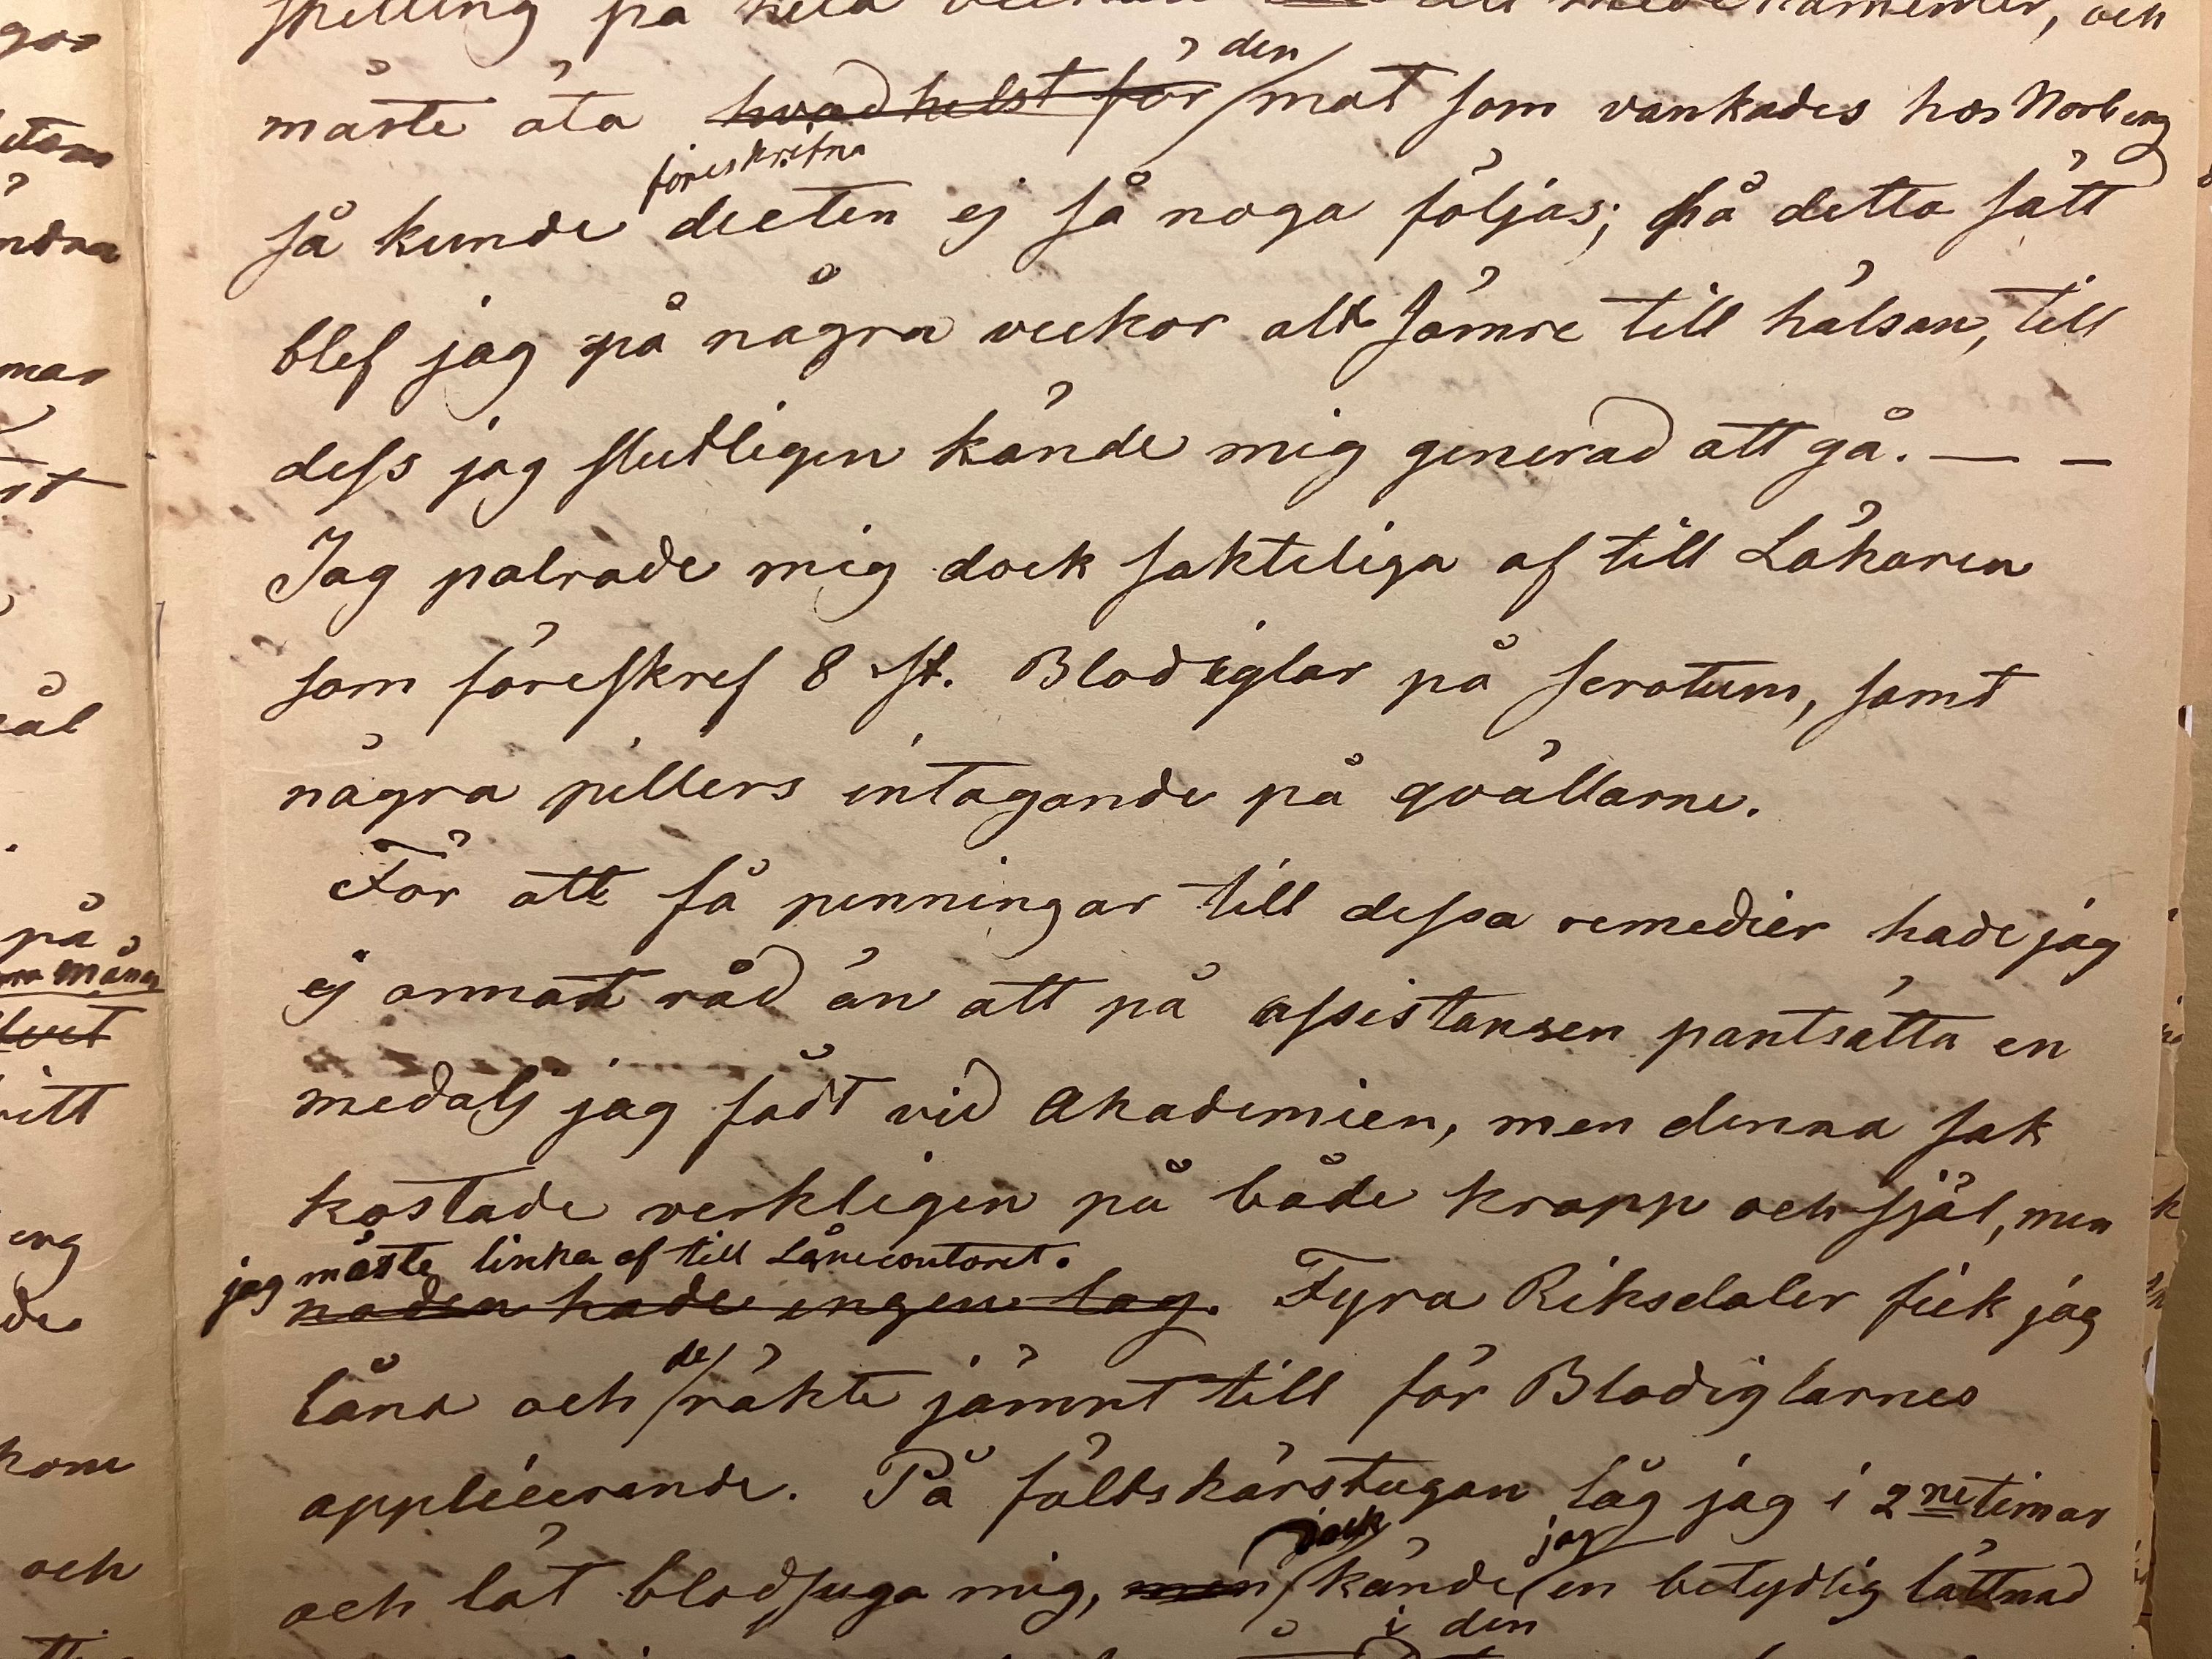 måste äta hvad helst för den mat som vankades hos Norberg
så kunde föreskrifna dieten ej så noga följas; på detta sätt
blef jag på några veckor allt sämre till hälsan, till
dess jag slutligen kände mig generad att gå. — —
Jag palrade mig dock sakteliga af till Läkaren
som föreskref 8 st. Blodiglar på scrotum, samt
några pillers intagande på qvällarne.
För att få penningar till dessa remedier hade jag
ej annat råd än att på assistansen pantsätta en
medalj jag fådt vid Akademien, men denna sak
kostade verkligen på både kropp och själ, men
jag måste linka af till Lånecontoret.
nöden hade ingen lag. Fyra Riksdaler fick jag
låna och de räkte jämnt till för Blodiglarnes
applicerande. På fältskärstugan låg jag i 2ne timar
och lät blodsuga mig, men kände jag en betydlig lättnad
i den